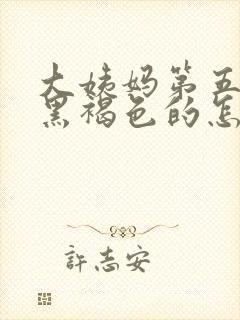 大姨妈第五
黑褐色的怎
許志安